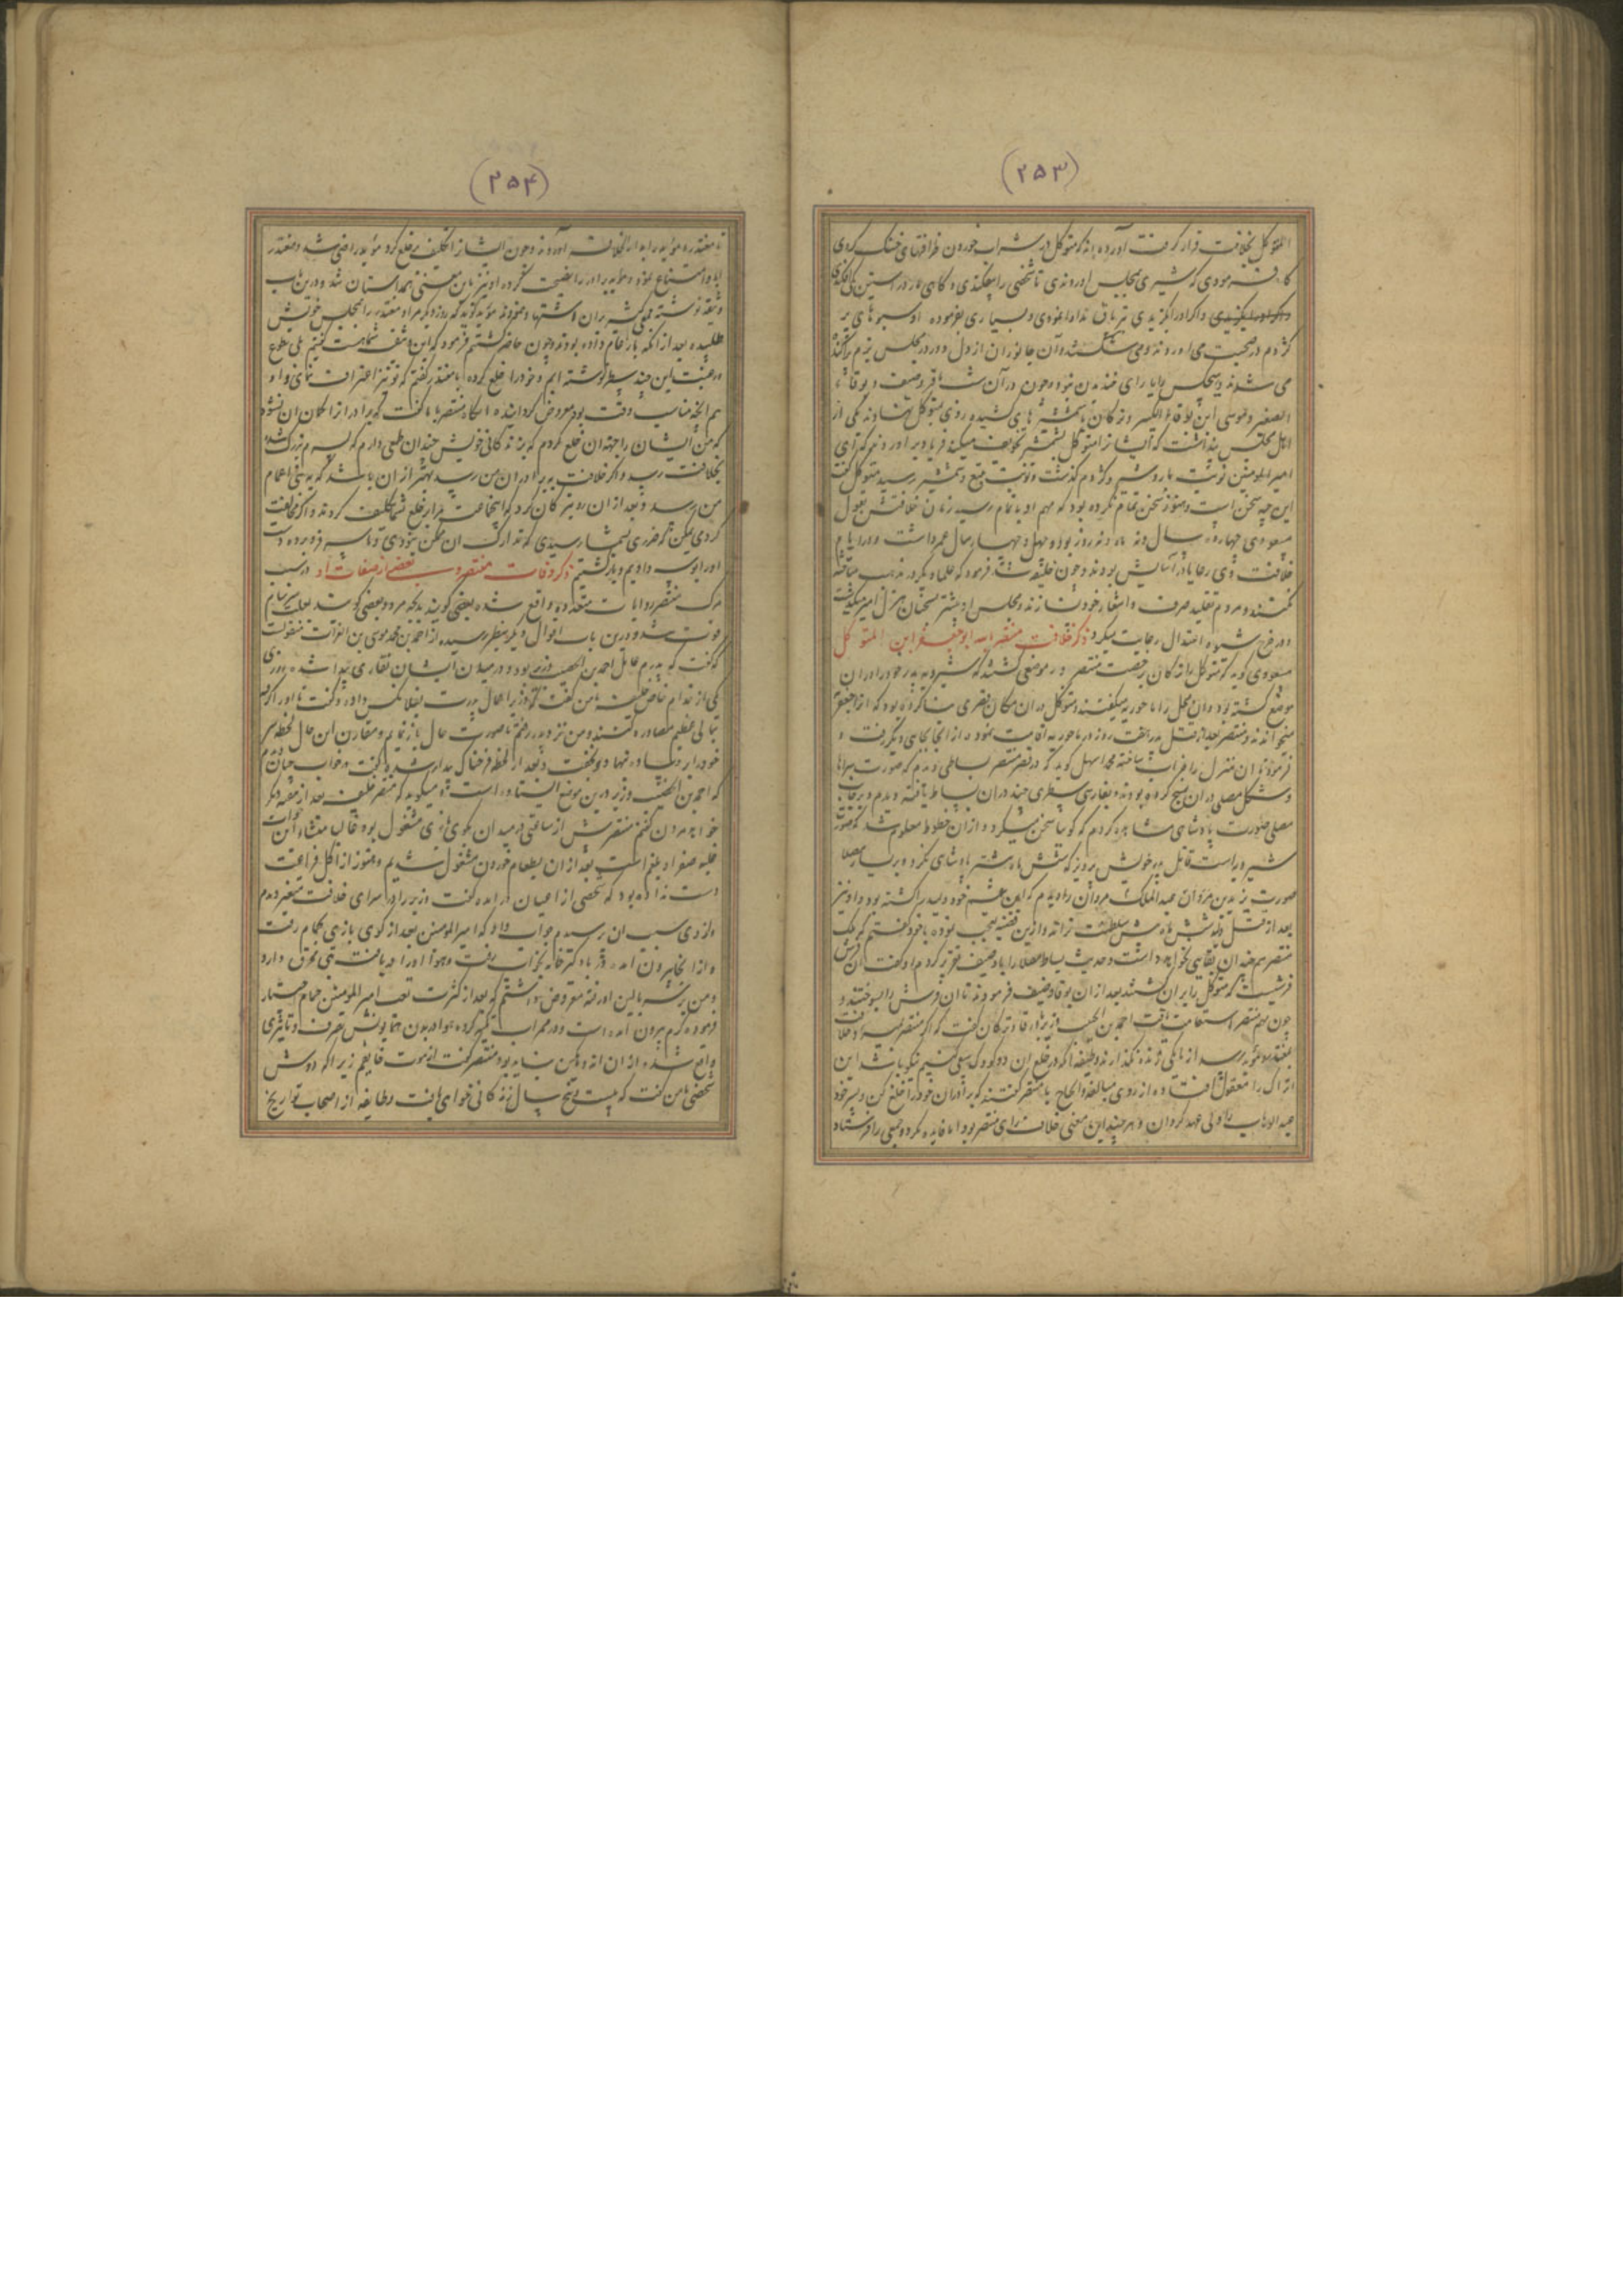 (۲۵۳)
المتوکل بخلافت قرار گرفت آورده‌اند که متوکل در شراب خوردن ظرافتهای خنک کردی
گاه فرمودی که شیری بمجلس اوردندی تا شخصی را بچنکندی و گاهی مار در استین یکی افکندی
و اگر او را بگزیدی تریاق مداوا نمودی و بسیاری بفرموده او سبوهای پر
کژدم در صحبت می اوردند و می شکستند و آن جانوران از دل و در مجلس بزم پراکنده
می شدند و هیچکس را یارای خندیدن نبود و چون در آن شب باقر و صیف و بوقاء
الصغیر و موسی ابن بوقاء الکبیر و ترکان با شمشیرهای کشیده روی بمتوکل نهادند یکی از
اهل مجلس پنداشت که ایشان را متوکل بشمشیر تخویف میکند فریاد بر اورد که ای
امیر المومنین نوبت مار و شیر و کژدم گذشت و نوبت تیغ و شمشیر رسید متوکل گفت
این چه سخن است و هنوز سخن تمام نکرده بود که مهم او باتمام رسید زمان خلافتش بقول
مسعودی چهارده سال و نه ماه و نه روز بود و چهل و چهار سال عمر داشت و در ایام
خلافت وی رعایا در آسایش بودند و چون خلیفه شد فرمود که علما دیگر در مذهب مناقشه
نکنند و مردم تقلید صرف و اشعار خود سازند و مجلس او بیشتر بسخنان هزل آمیز میگذشت
و در خرج شیوه اعتدال رعایت میکرد ذکر خلافت منتصر بالله ابو جعفر ابن المتوکل
مسعودی گوید که متوکل را ترکان برخصت منتصر در موضعی کشتند که شیرویه پدر خود را در ان
موضع کشته بود و ان محل را ماحوزیه میگفتند و متوکل در ان مکان قصری بنا کرده بود که انرا جعفریه
میخواندند و منتصر بعد از قتل پدر هفت روز در ماحوزیه اقامت نموده از انجا بجای دیگر رفت و
فرمود تا ان منزل را خراب ساختند محمد سهل گوید که در قصر منتصر بساطی دیدم که صورت سرها
و شکل مصلی در ان نسج کرده بودند و بفارسی سطری چند در ان بساط یافته دیدم و بر جانب
مصلی صورت پادشاهی مشاهده کردم که گویا سخن میکرد و از ان خطوط معلوم شد که صورت
شیرویه است قاتل پدر خویش پرویز که شش ماه بیشتر پادشاهی نکرد و بر یسار مصلا
صورت یزید بن ولید بن عبد الملک مروان را دیدم که ابن عم خود ولید را کشته بود و او نیز
بعد از قتل ولید شش ماه بیش سلطنت نراند و ازین قضیه تعجب نموده با خود گفتم که ملک
منتصر هم چندان بقایی نخواهد داشت و حدیث بساط مصلا را با وصیف تقریر کردم او گفت ان فرش
فرشیست که متوکل را بر ان کشتند بعد از ان بوقا و وصیف فرمودند تا ان فرش را بسوختند و
چون مهم منتصر استقامت یافت احمد بن الخصیب وزیر با بوقا و ترکان گفت که اگر منتصر بمیرد و خلافت
بمعتز یا مؤید رسد از ما یکی زنده نگذارند وظیفه آنکه در خلع ان دو کودک سعی کنیم نیکو باشد این
اتراک را معقول افتاده از روی مبالغه و الحاح با منتصر گفتند که برادران خود را خلع کن و پسر خود
عبد الوهاب را ولی عهد گردان و هر چند این معنی خلاف رای منتصر بود اما فایده نکرد و جمعی را فرستاد
(۲۵۴)
تا معتز و مؤید را بدار الخلافت آوردند و چون ایشان را تکلیف بر خلع کرد مؤید راضی شد و معتز
ابا و امتناع نمود و مؤید برادر را نصیحت کرده او نیز باین معنی همداستان شد و درین باب
وثیقه نوشته جمعی کثیر بران و شتها نمودند مؤید گوید که روز دیگر مرا و معتز را بمجلس خویش
طلبیده بعد از آنکه بار عام داده بودند و چون حاضر گشتیم فرمود که این وثیقه شماست گفتیم بلی بطوع
و رغبت این چند سطر نوشته ایم و خود را خلع کرده با معتز گفتم که تو نیز اعتراف نمای و او
هم انچه مناسب وقت بود معروض گردانیده انگاه منتصر با ما گفت که برادر از گمان ان نشود
که من ایشان را جهت ان خلع کردم که بزندگانی خویش چندان طمعی دارم که پسرم بزرگ شده
بخلافت رسد و اگر خلافت ببرادران من رسد بهتر از ان باشد که به بنی اعمام
من رسد و بعد از ان روی بترکان کرد که اینجماعت مرا بر خلع شما تکلیف کردند و اگر مخالفت
کردمی یمکن که ضرری بشما رسیدی که تدارک ان ممکن نبودی و ما سر فرو برده دست
او را بوسه دادیم و بازگشتیم ذکر وفات منتصر و سبب بعضی از صفات او در سبب
مرگ منتصر روایات متعدده واقع شده بعضی گویند بذبحه مرد و بعضی گویند بعلت سرسام
فوت شد و درین باب اقوال دیگر بنظر رسیده از احمد بن محمد موسی بن الفرات منقولست
که گفت که پدرم عامل احمد بن الخصیب وزیر بود و در میان ایشان نقاری پیدا شد روزی
یکی از خدام خاص خلیفه با من گفت که وزیر اعمال پدرت بفلانکس داد و گفت تا او را گرفته
بمالی عظیم مصادره کنند و من نزد پدر رفتم تا صورت حال باز نمایم و مقارن این حال لحظه سر
خود را بر وساده نهاد و بخفت و بعد از لحظه فرحناک بیدار شده گفت در خواب چنان دیدم
که احمد بن الخصیب وزیر درین موضع ایستاده است و میگوید که منتصر خلیفه بعد از سه روز دیگر
خواهد مردن گفتم منتصر بیش از ساعتی در میدان بگوی بازی مشغول بود و غالبا منشاء این خواب
غلبه صفرا و بلغم است بعد از ان بطعام خوردن مشغول شدیم و هنوز از اکل فراغت
دست نداده بود که شخصی از اعیان در امده گفت وزیر را در سرای خلافت متغیر دیدم
و از وی سبب ان پرسیدم جواب داد که امیر المومنین بعد از گوی بازی بحمام رفت
و از انجا بیرون امده در بادگیر خانه بخواب رفت و هوا او را دریافت تبی محرق دارد
و من بر سر بالین او رفته معروض داشتم که بعد از کثرت تعب امیر المومنین حمام اختیار
فرموده گرم بیرون امده است و در ممر اب تکیه کرده هوا در بدن همایونش تصرف و تاثیری
واقع شده از ان اندوهگین نباید بود منتصر گفت از موت خایفم زیرا که دوش
شخصی با من گفت که بیست و پنج سال زندگانی خواهی یافت و طایفه از اصحاب تواریخ